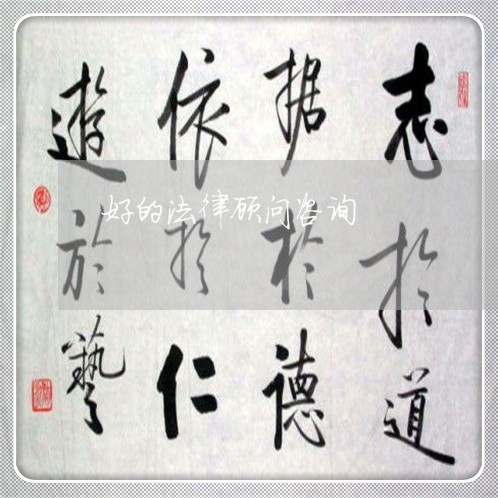 志於道
据於德
依於仁
遊於藝
好的法律顾问咨询